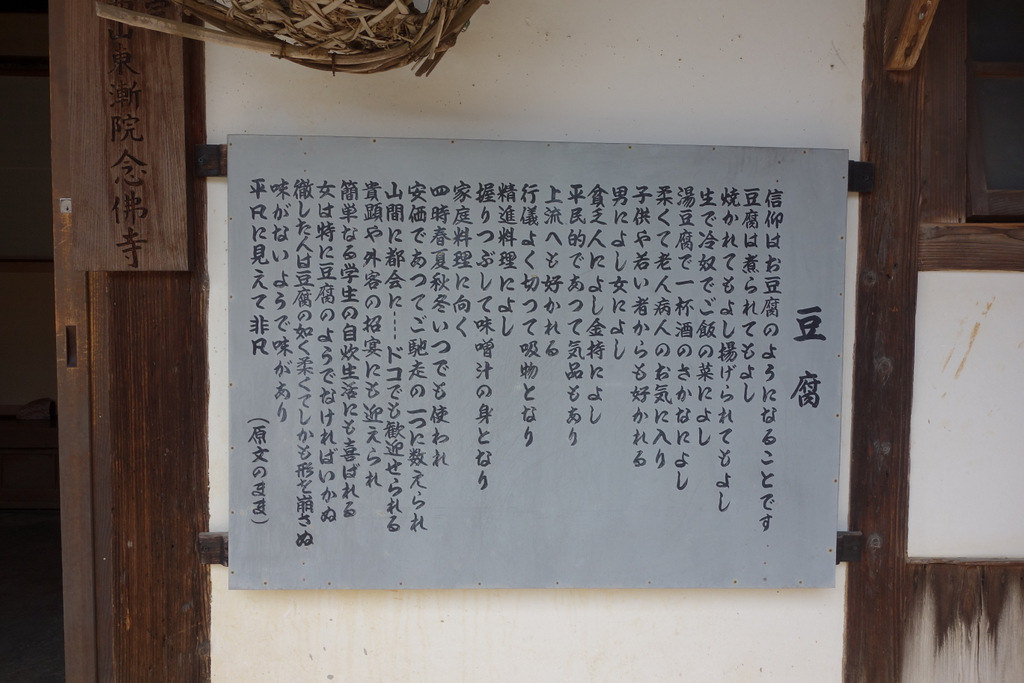 豆腐
信仰はお豆腐のようになることです
豆腐は煮られてもよし
焼かれてもよし揚げられてもよし
生で冷奴でご飯の菜によし
湯豆腐で一杯酒のさかなによし
柔くて老人病人のお気に入り
子供や若い者からも好かれる
男によし女によし
貧乏人によし金持によし
平民的であつて気品もあり
上流へも好かれる
行儀よく切つて吸物となり
精進料理によし
握りつぶして味噌汁の身となり
家庭料理に向く
四時春夏秋冬いつでも使われ
安価であつてご馳走の一つに数えられ
山間に都会に---ドコでも歓迎せられる
貴顕や外客の招宴にも迎えられ
簡単なる学生の自炊生活にも喜ばれる
女は特に豆腐のようでなければいかぬ
徹した人は豆腐の如く柔くてしかも形を崩さぬ
味がないようで味があり
平凡に見えて非凡
(原文のまま)
山東漸院念佛寺